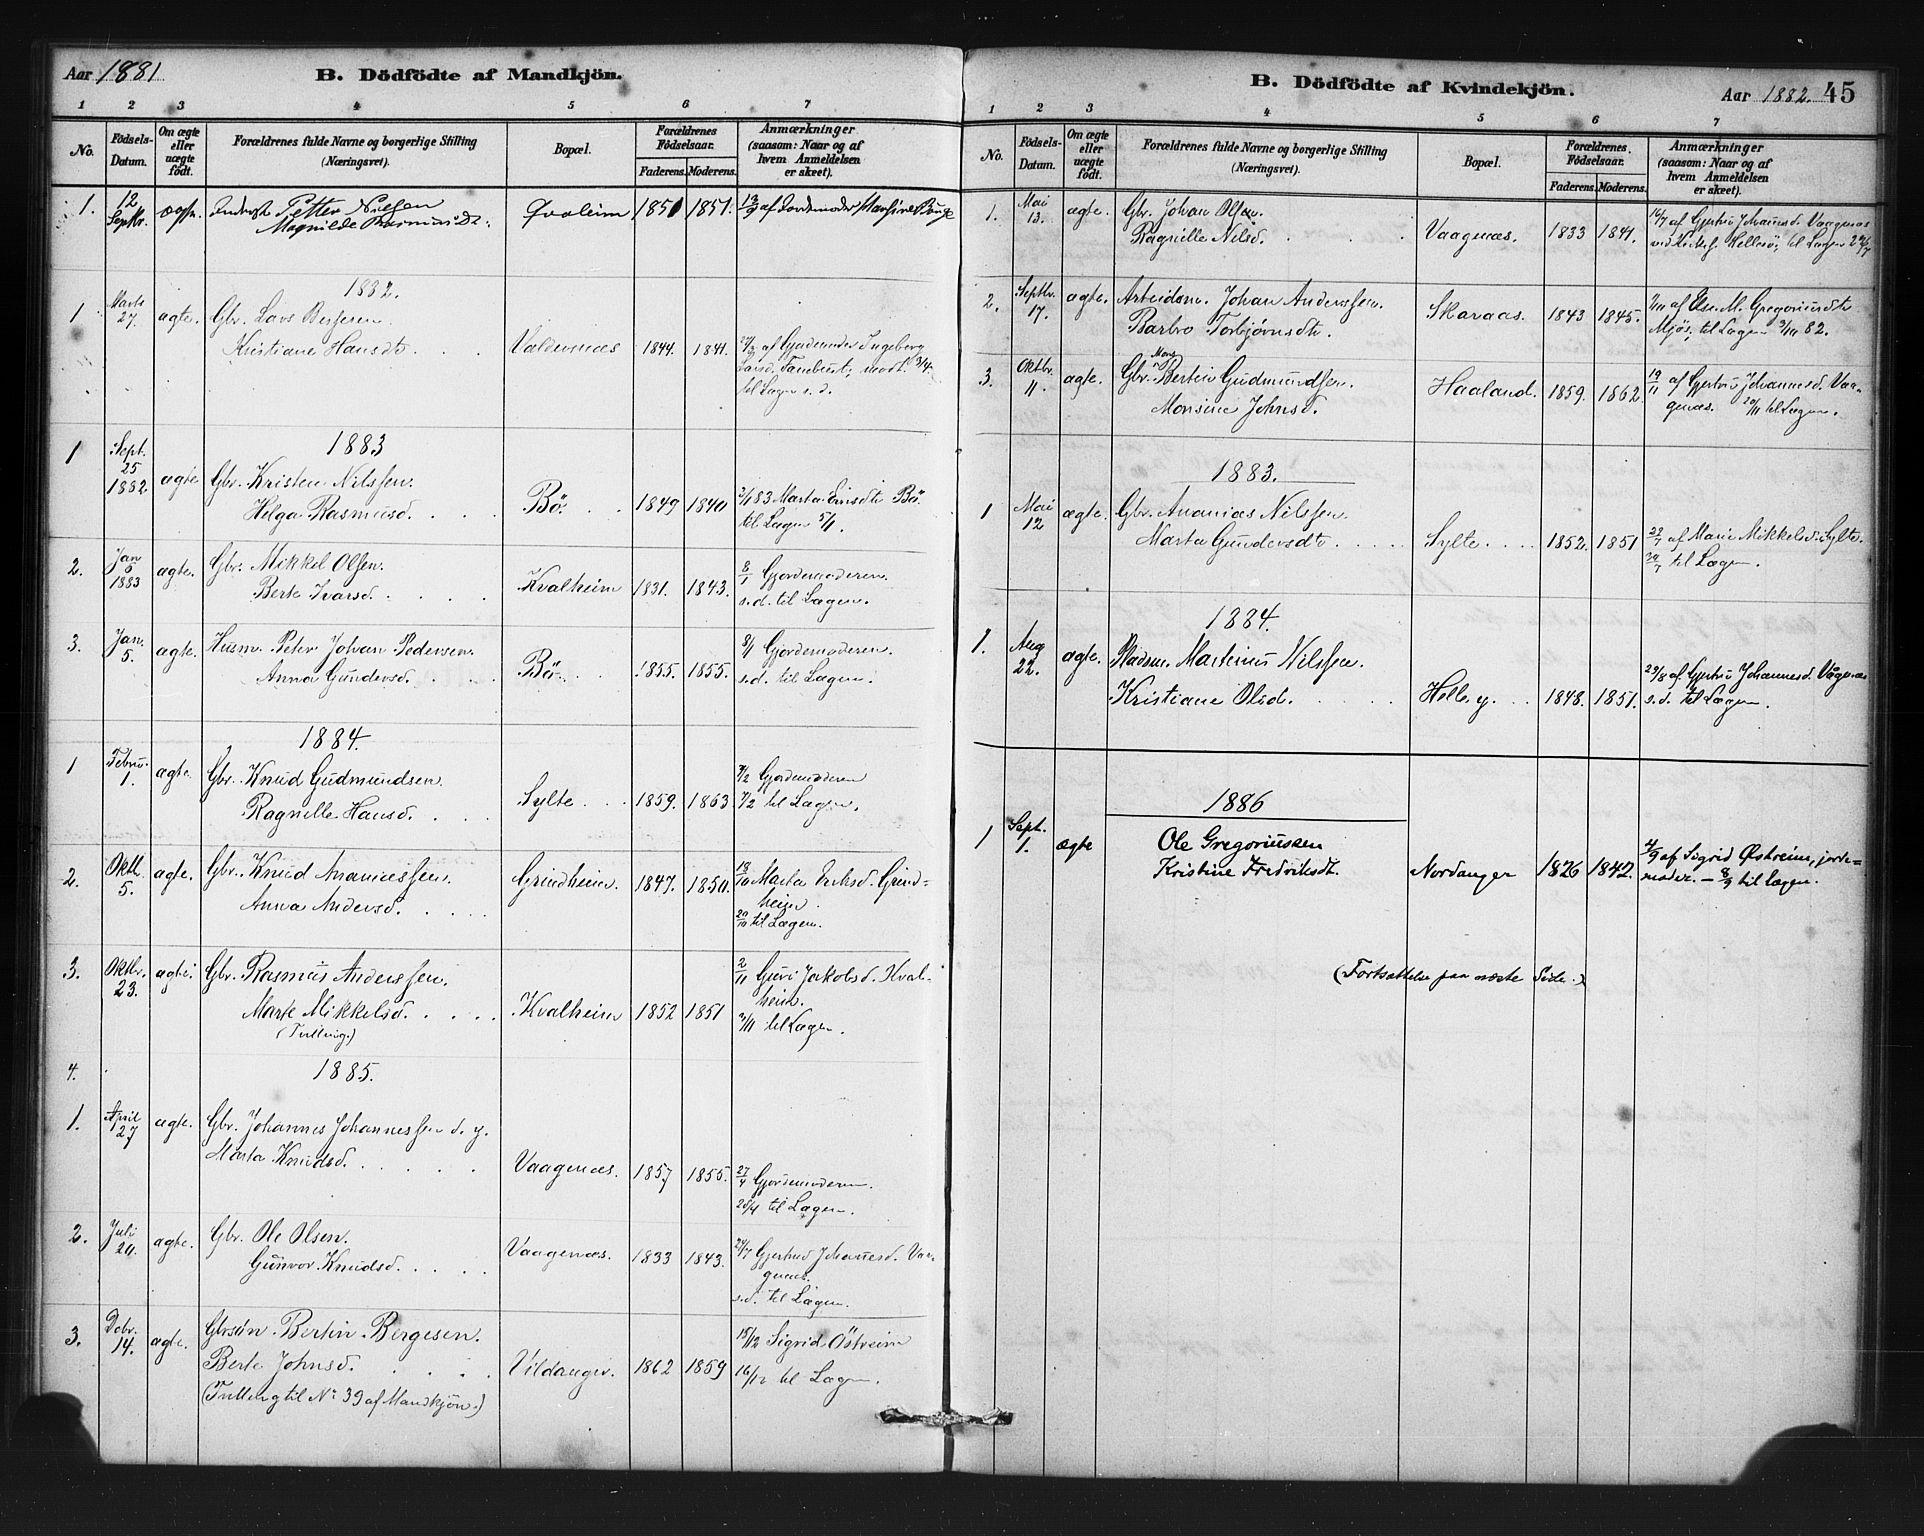 Aar 1881
B. Dödfödte af Mandkjön.
1 2 3 4 5 6 7
No.
Födsels-Datum.
Om ægte eller uægte födt.
Forældrenes fulde Navne og borgerlige Stilling
(Næringsvei).
Bopæl.
Forældrenes Födselsaar.
Faderens. Moderens.
Anmærkninger
(saasom: Naar og af
hvem Anmeldelsen
er skeet).
1. 12 Septbr. ægte. Petter Nilsen
Magnilde Rasmusdt.
Qvaleim 1851 1851. 13/9 af Jordemoder
1882.
1 Marts 27. ægte. Gbr. Lars Bergesen
Kristiane Hansdt. Valdernæs 1844. 1841. af Gjordemoder Ingeborg
Larsd. 3/4.
til Lægen s. d.
1883
1 Sept. 25 1882 ægte Gbr. Kristen Nilssen.
Helga Rasmusd. Bö. 1849 1840 2/1 83 Marta Bö.
til Lægen 5/1.
2. Jan 6 1883 ægte. Gbr. Mikkel Olsen.
Berte Ivarsd. Kvalheim 1831. 1843. 8/1 Gjordemoderen.
s.d. til Lægen.
3. Jan. 5. ægte. Husm. Peter Johan Pedersen.
Anna Gundersd. Bö. 1855. 1855. 8/1 Gjordemoderen.
s.d. til Lægen.
1884.
1 Febru. 1. ægte. Gbr. Knud Gudmundsen.
Ragnille Hansd. Sylte 1859. 1863 Gjordemoderen
7/2 til Lægen.
2. Oktb. 5. ægte. Gbr. Knud Ananiassen.
Anna Andersd. Grindheim. 1847. 1850. 18/10 Marta Eriksd. Grind-
heim.
20/10 til Lægen.
3. Oktbr. 23. ægte. Gbr. Rasmus Anderssen.
Marte Mikkelsd. Kvalheim 1852 1851 2/11 Guri Jakobsd. Kval-
heim.
(Tvilling.) 3/11 til Lægen.
4. 1885.
1. April 27 ægte. Gbr. Johannes Johannessen d. y.
Marta Knudsd. Vaagenæs. 1857 1855. 27/4 Gjordemoderen.
28/4 til Lægen.
2. Juli 24. ægte. Gbr. Ole Olsen.
Gunvor Knudsd. Vaagenæs. 1833 1843. 24/7 Gjertrud Johannesd. Vaa-
genæs.
s.d. til Lægen.
3. Dcbr. 14. ægte. Gbrsön. Bertin Bergesen.
Berte Johnsd. Vildanger. 1862 1859 15/12 Sigrid Östreim
16/12 til Lægen.
(Tvilling til No 39 af Mandkjön.)
B. Dödfödte af Kvindekjön.
Aar 1882. 45
1 2 3 4 5 6 7
No.
Födsels-Datum.
Om ægte eller uægte födt.
Forældrenes fulde Navne og borgerlige Stilling
(Næringsvei).
Bopæl.
Forældrenes Födselsaar.
Faderens. Moderens.
Anmærkninger
(saasom: Naar og af
hvem Anmeldelsen
er skeet).
1. Mai 13. ægte. Gbr. Johan Olsen.
Ragnille Nilsd. Vaagenæs. 1833 1841. 16/7 af Gjertru Johannesd. Vaagenæs
til Lægen
2. Septbr. 17. ægte. Arbeidsm. Johan Anderssen.
Barbro Torbjörnsdt. Skaraas. 1843 1845. af Else M. Gregoriusdt.
Mjös, til Lægen 3/11 82.
3. Oktbr. 11. ægte. Gbr. Mons Bertin Gudmundsen.
Monsine Johnsd. Haaland. 1859. 1862. 19/11 af Gjertru Johannesd. Vaa-
genæs. 20/11 til Lægen.
1883.
1 Mai 12 ægte. Gbr. Ananias Nilssen.
Marta Gundersdt. Sylte. 1852. 1851 af Marie Mikkelsd. Sylte.
til Lægen.
1884.
1. Aug 22. ægte. Pladsm. Martinus Nilssen.
Kristiane Olsd. Helle, y. 1848. 1851. 23/8 af Gjertru Johannesd. Vågenæs
s.d. til Lægen.
1886
1 Sept. 1. ægte Ole Gregoriussen
Kristine Fredriksdt. Nordanger 1826 1842. 4/9 af Sigrid Östreim, jorde=
moder. — 8/9 til Lægen.
(Fortsættelse paa næste Side.)